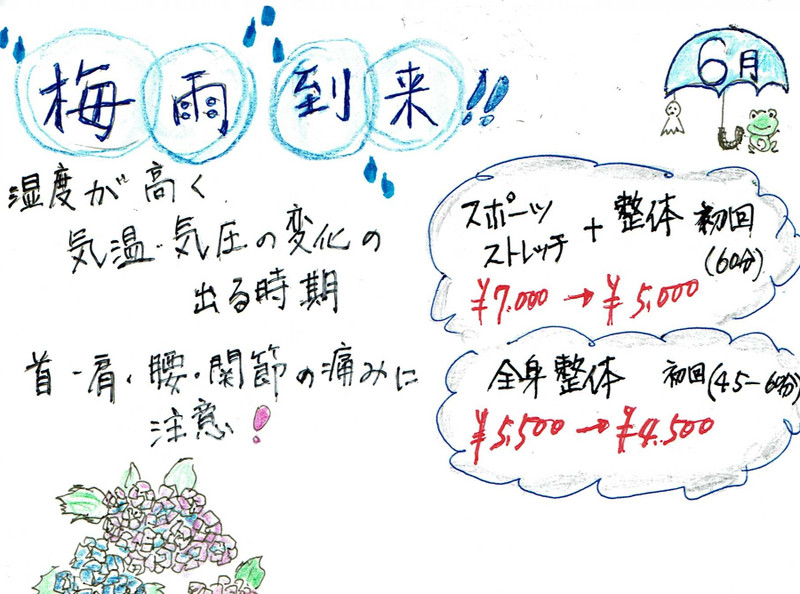 梅雨到来!!
6月
湿度が高く
気温・気圧の変化の
出る時期
首・肩・腰・関節の痛みに
注意!
スポーツ
ストレッチ + 整体 初回
(60分)
¥7,000 → ¥5,000
全身整体 初回(45-60分)
¥5,500 → ¥4,500